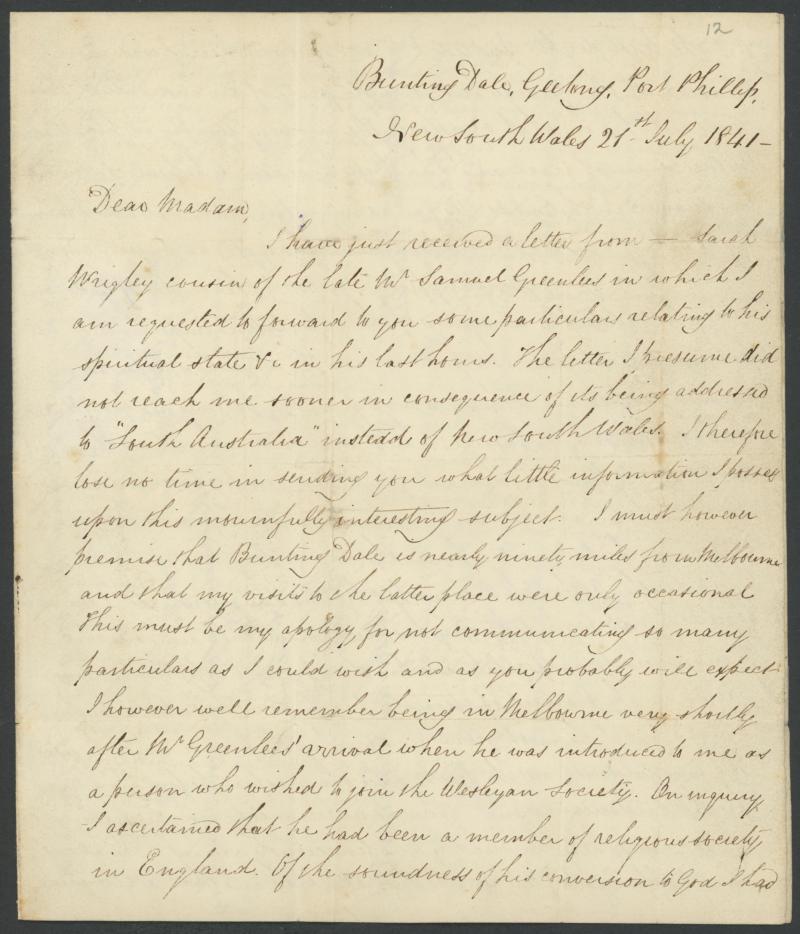 12
Bunting Dale, Geelong, Port Phillip,
New South Wales 21st July 1841-
Dear Madam,
I have just received a letter from — Sarah
Wrigley cousin of the late Mr Samuel Greenlees in which I
am requested to forward to you some particulars relating to his
spiritual state &c in his last hours. The letter I presume did
not reach me sooner in consequence of its being addressed
to "South Australia" instead of New South Wales. I therefore
lose no time in sending you what little information I possess
upon this mournfully interesting subject. I must however
premise that Bunting Dale is nearly ninety miles from Melbourne
and that my visits to the latter place were only occasional
This must be my apology for not communicating so many
particulars as I could wish and as you probably will expect
I however well remember being in Melbourne very shortly
after Mr Greenlees' arrival when he was introduced to me as
a person who wished to join the Wesleyan Society. On inquiry
I ascertained that he had been a member of religious society
in England. Of the soundness of his conversion to God I had